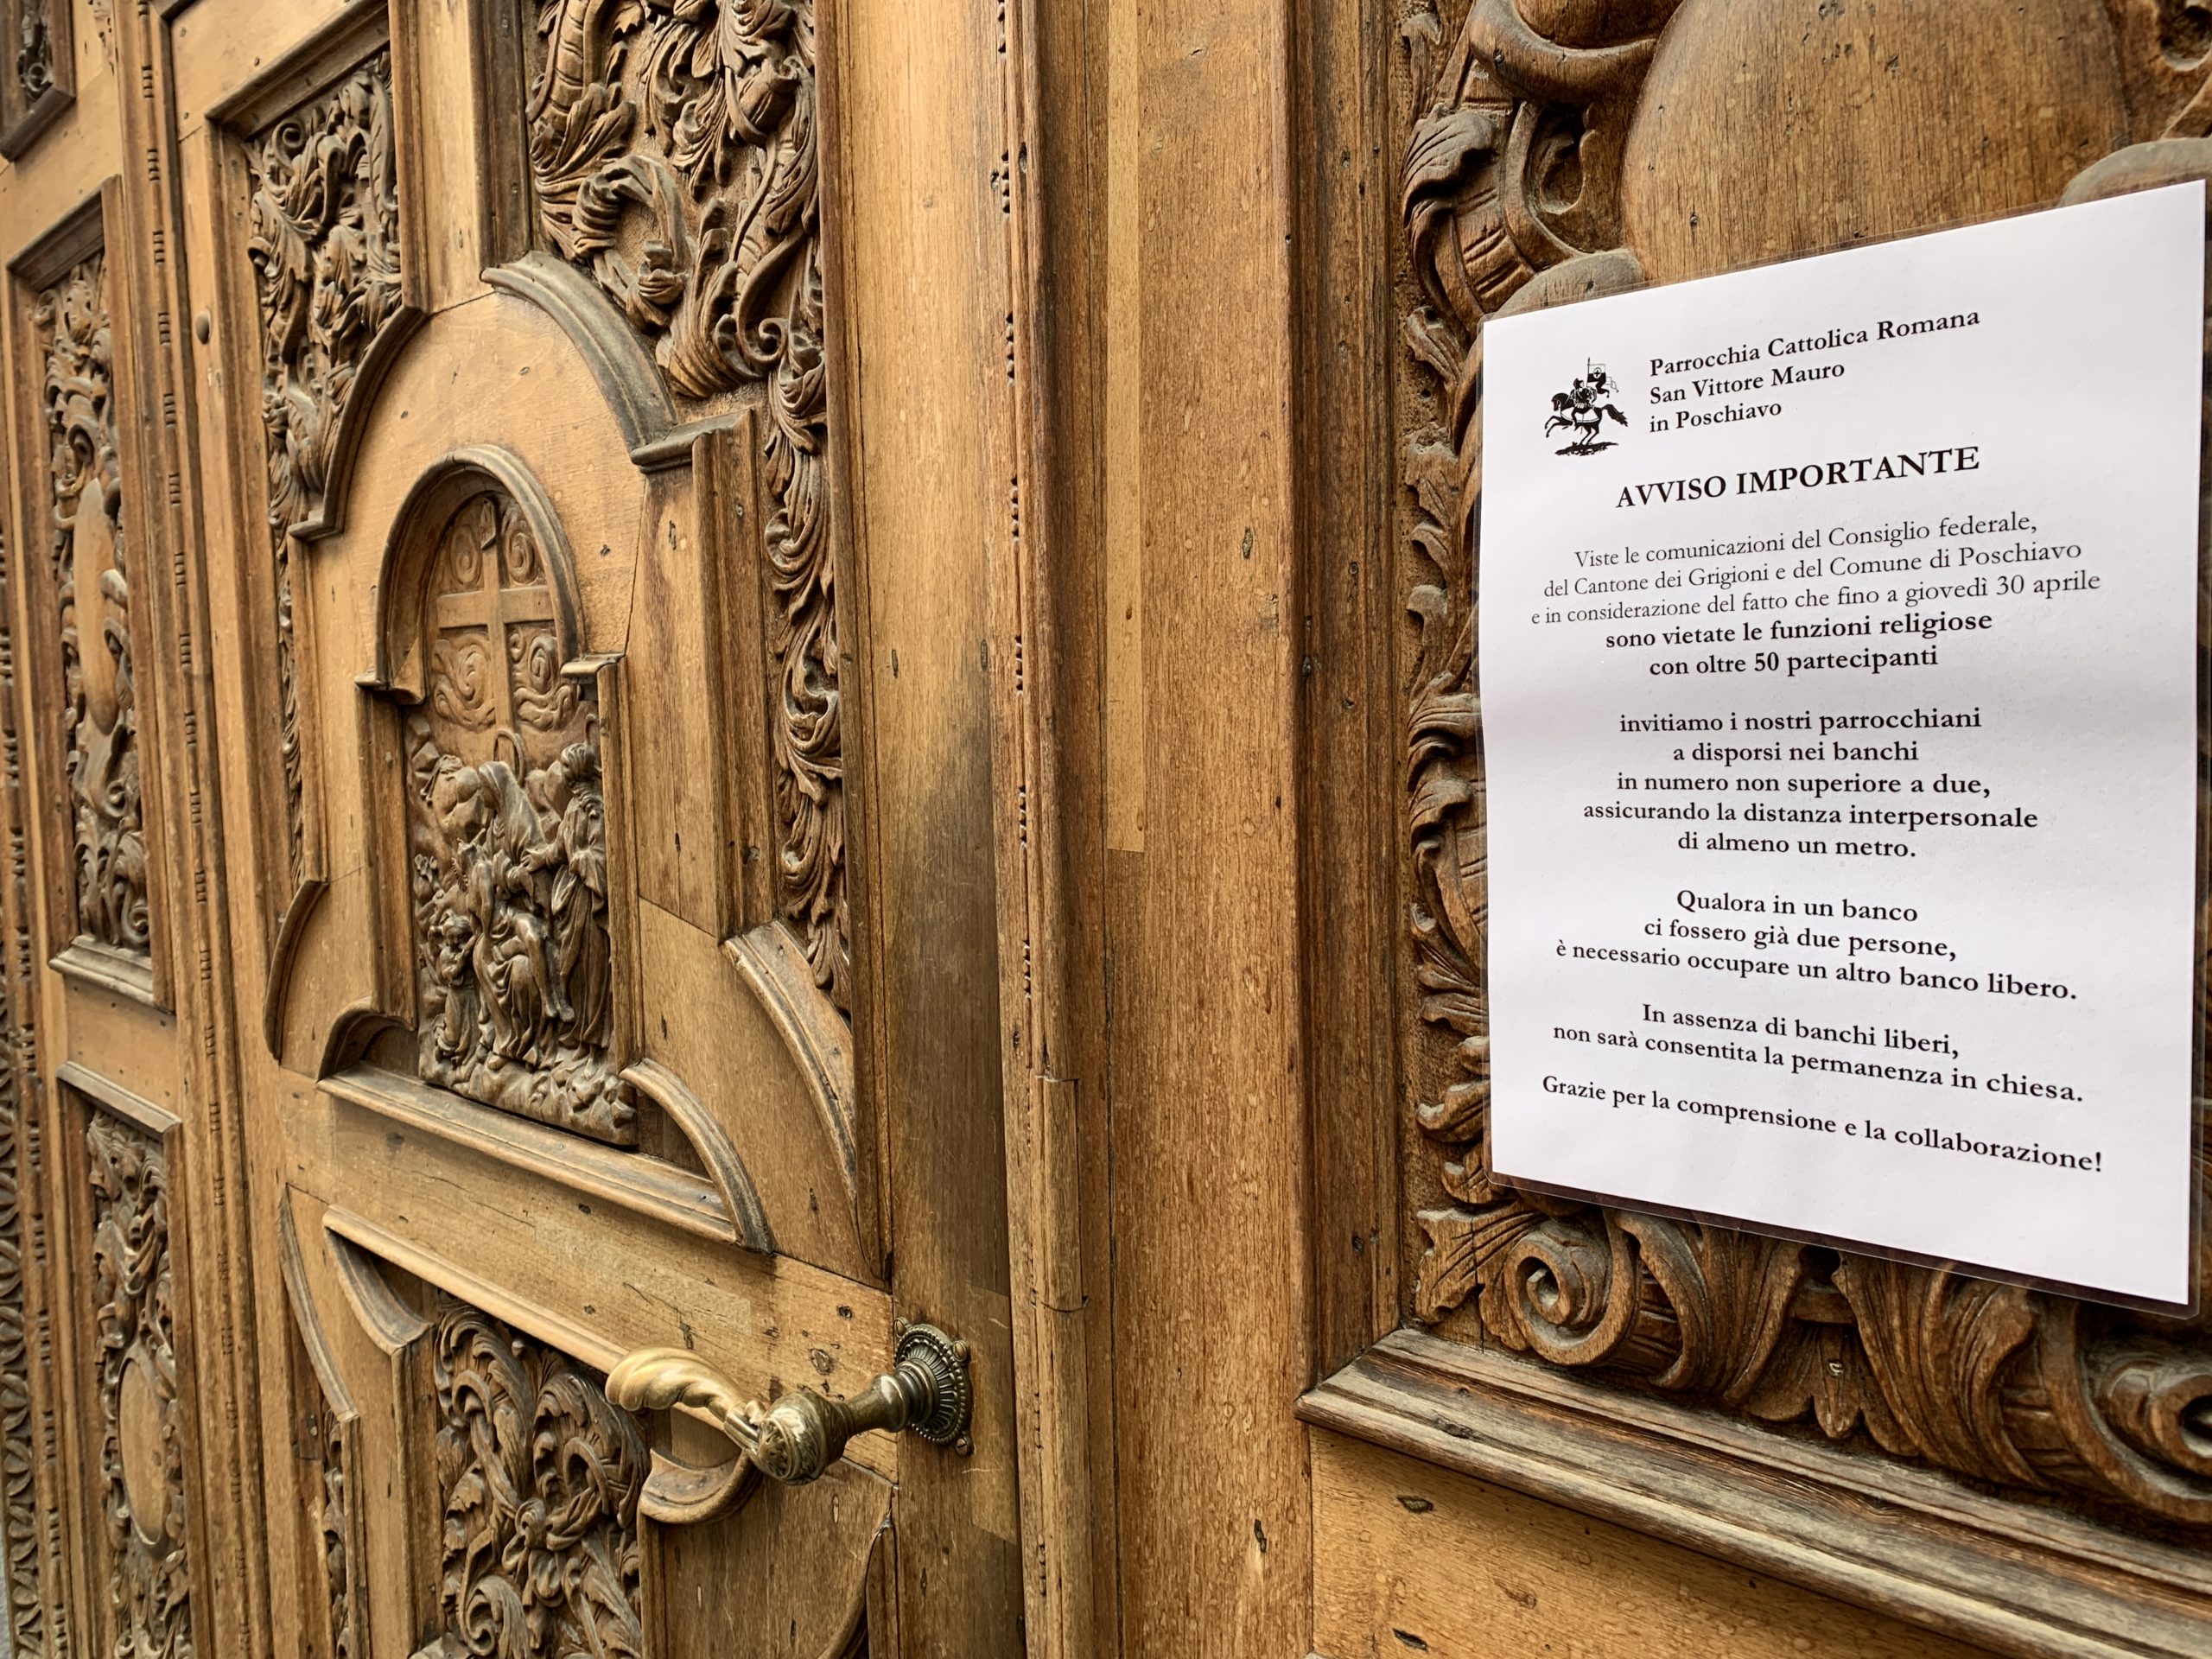 Parrocchia Cattolica Romana
San Vittore Mauro
in Poschiavo
AVVISO IMPORTANTE
Viste le comunicazioni del Consiglio federale,
del Cantone dei Grigioni e del Comune di Poschiavo
e in considerazione del fatto che fino a giovedì 30 aprile
sono vietate le funzioni religiose
con oltre 50 partecipanti
invitiamo i nostri parrocchiani
a disporsi nei banchi
in numero non superiore a due,
assicurando la distanza interpersonale
di almeno un metro.
Qualora in un banco
ci fossero già due persone,
è necessario occupare un altro banco libero.
In assenza di banchi liberi,
non sarà consentita la permanenza in chiesa.
Grazie per la comprensione e la collaborazione!